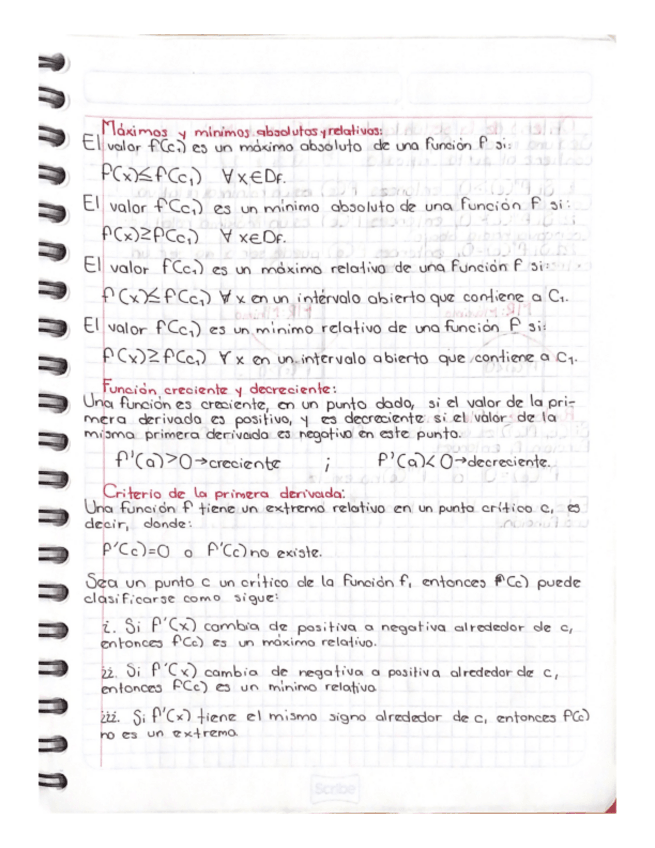 Máximos y mínimos absolutos y relativos:
El valor f(c₁) es un máximo absoluto de una función f si:
f(x)≤f(c₁) ∀x∈Df.
El valor f(c₁) es un mínimo absoluto de una función f si:
f(x)≥f(c₁) ∀x∈Df.
El valor f(c₁) es un máximo relativo de una función f si:
f(x)≤f(c₁) ∀x en un intérvalo abierto que contiene a C₁.
El valor f(c₁) es un mínimo relativo de una función f si:
f(x)≥f(c₁) ∀x en un intervalo abierto que contiene a C₁.
Función creciente y decreciente:
Una función es creciente, en un punto dado, si el valor de la pri-
mera derivada es positivo, y es decreciente si el valor de la
misma primera derivada es negativo en este punto.
f'(a)>0→creciente ; f'(a)<0→decreciente.
Criterio de la primera derivada:
Una función f tiene un extremo relativo en un punto crítico c, es
decir, donde:
f'(c)=0 o f'(c) no existe.
Sea un punto c un crítico de la función f, entonces f(c) puede
clasificarse como sigue:
i. Si f'(x) cambia de positiva a negativa alrededor de c,
entonces f(c) es un máximo relativo.
ii. Si f'(x) cambia de negativa a positiva alrededor de c,
entonces f(c) es un mínimo relativo
iii. Si f'(x) tiene el mismo signo alrededor de c, entonces f(c)
no es un extremo.
Scribe